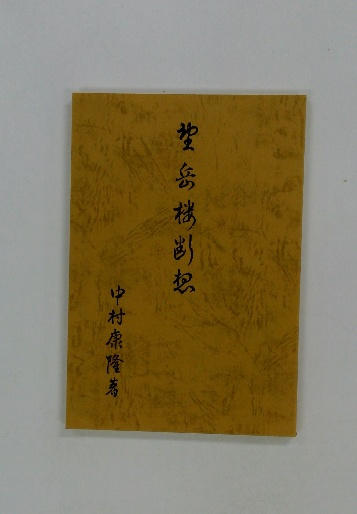 望岳楼断想
中村康隆著